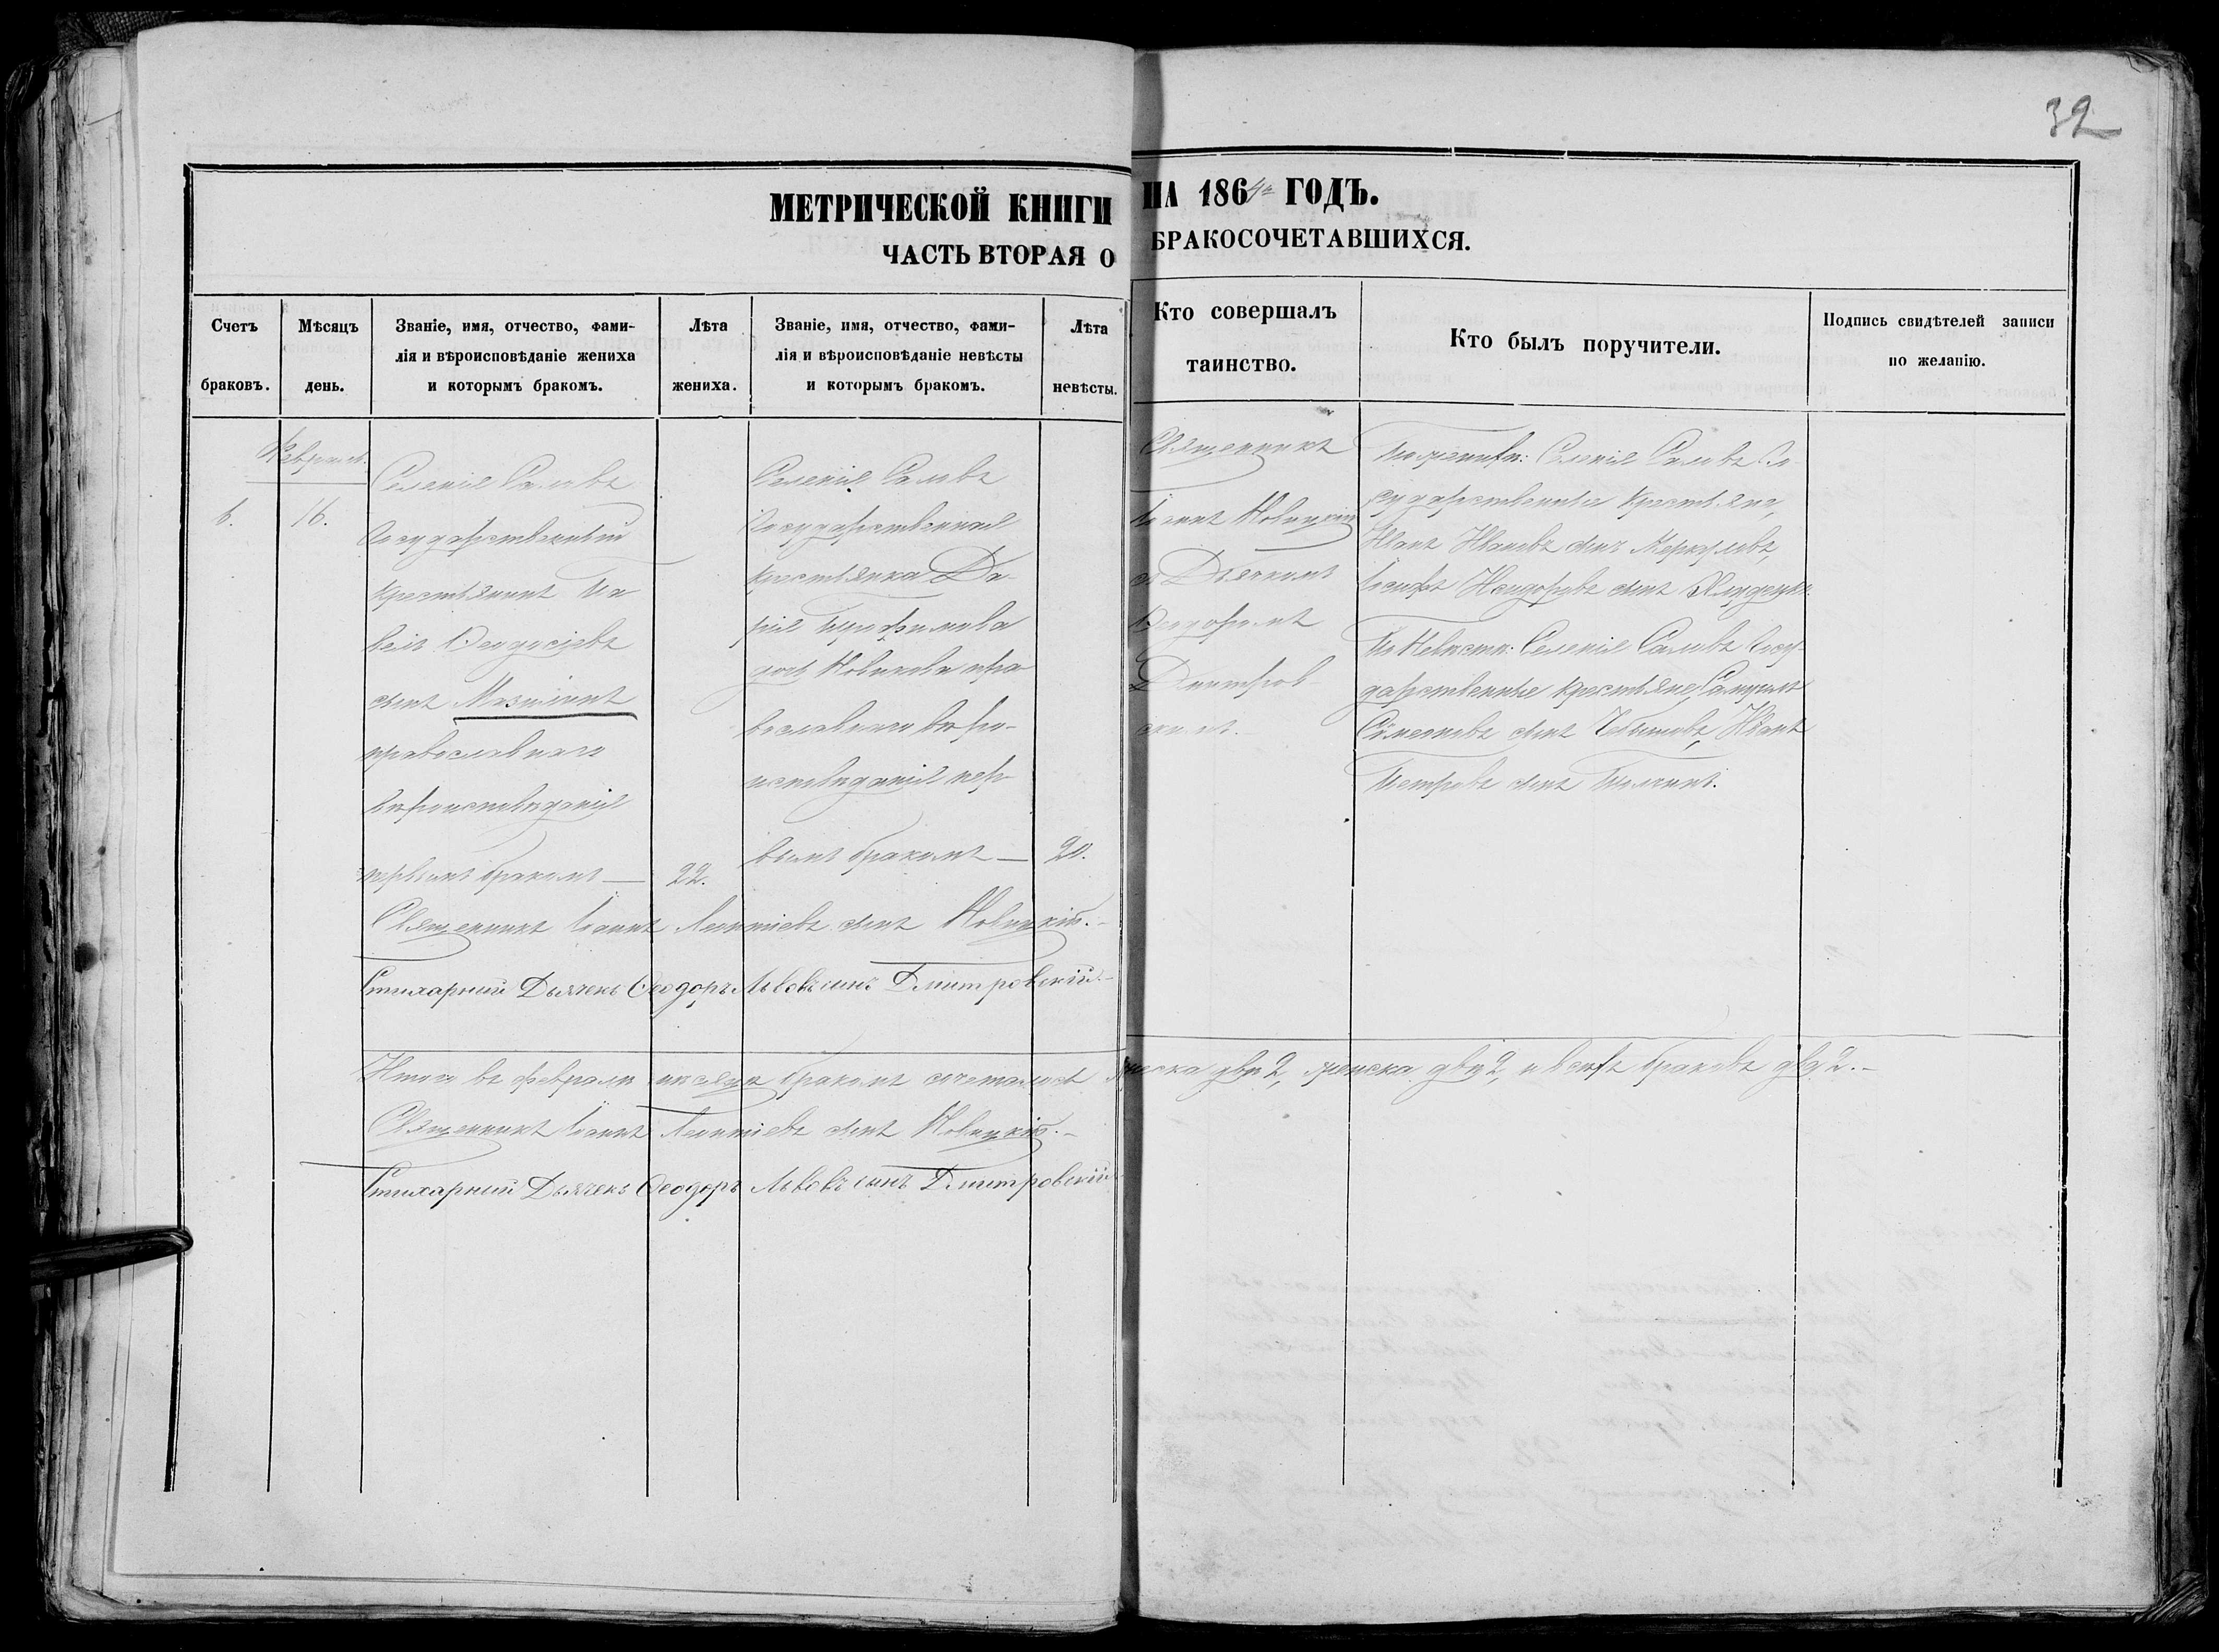 32
МЕТРИЧЕСКОЙ КНИГИ НА 1864й ГОДЪ.
ЧАСТЬ ВТОРАЯ О БРАКОСОЧЕТАВШИХСЯ.
Счетъ браковъ.
Мѣсяцъ день.
Званіе, имя, отчество, фами-
лія и вѣроисповѣданіе жениха
и которымъ бракомъ.
Лѣта жениха.
Званіе, имя, отчество, фами-
лія и вѣроисповѣданіе невѣсты
и которымъ бракомъ.
Лѣта невѣсты.
Кто совершалъ
таинство.
Кто былъ поручители.
Подпись свидѣтелей записи
по желанію.
Февраль.
6.
16.
Селенія
Государственный
крестьянинъ Па
велъ Ѳеодосіевъ
сынъ
православнаго
вѣроисповѣданія
первымъ бракомъ —
22.
Селенія
Государственная
крестьянка Да-
рія Трофимова
дочь Новикова пра
вославнаго вѣро-
исповѣданія пер
вымъ бракомъ —
20.
Священникъ
Іоаннъ Новицкій
съ Дьячкомъ
Ѳеодоромъ
Дмитров
скимъ.
По женихѣ: Селенія Го
сударственные крестьяне,
Иванъ Ивановъ сынъ Меркуловъ,
Іосифъ Исидоровъ сынъ
По Невѣстѣ: Селенія Госу-
дарственные крестьяне, Самуилъ
Симеоновъ сынъ Иванъ
Петровъ сынъ
Священникъ Іоаннъ Леонтіевъ сынъ Новицкій.
Стихарный Дьячекъ Ѳеодоръ Львовъ сынъ Дмитровскій.
Итого въ февралѣ мѣсяцѣ бракомъ сочеталось мужеска два 2, женска два 2, и всѣхъ браковъ два 2.
Священникъ Іоаннъ Леонтіевъ сынъ Новицкій.
Стихарный Дьячекъ Ѳеодоръ Львовъ сынъ Дмитровскій